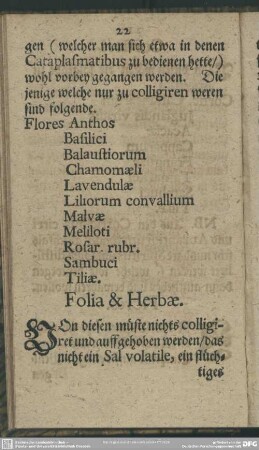 22
gen ( welcher man sich etwa in denen
Cataplasmatibus zu bedienen hette/)
wohl vorbey gegangen werden. Die
jenige welche nur zu colligiren weren
sind folgende.
Flores Anthos
Basilici
Balaustiorum
Chamomæli
Lavendulæ
Liliorum convallium
Malvæ
Meliloti
Rosar. rubr.
Sambuci
Tiliæ.
Folia & Herbæ.
VOn diesen müste nichts colligi-
ret und auffgehoben werden/das
nicht ein Sal volatile, ein flüch-
tiges